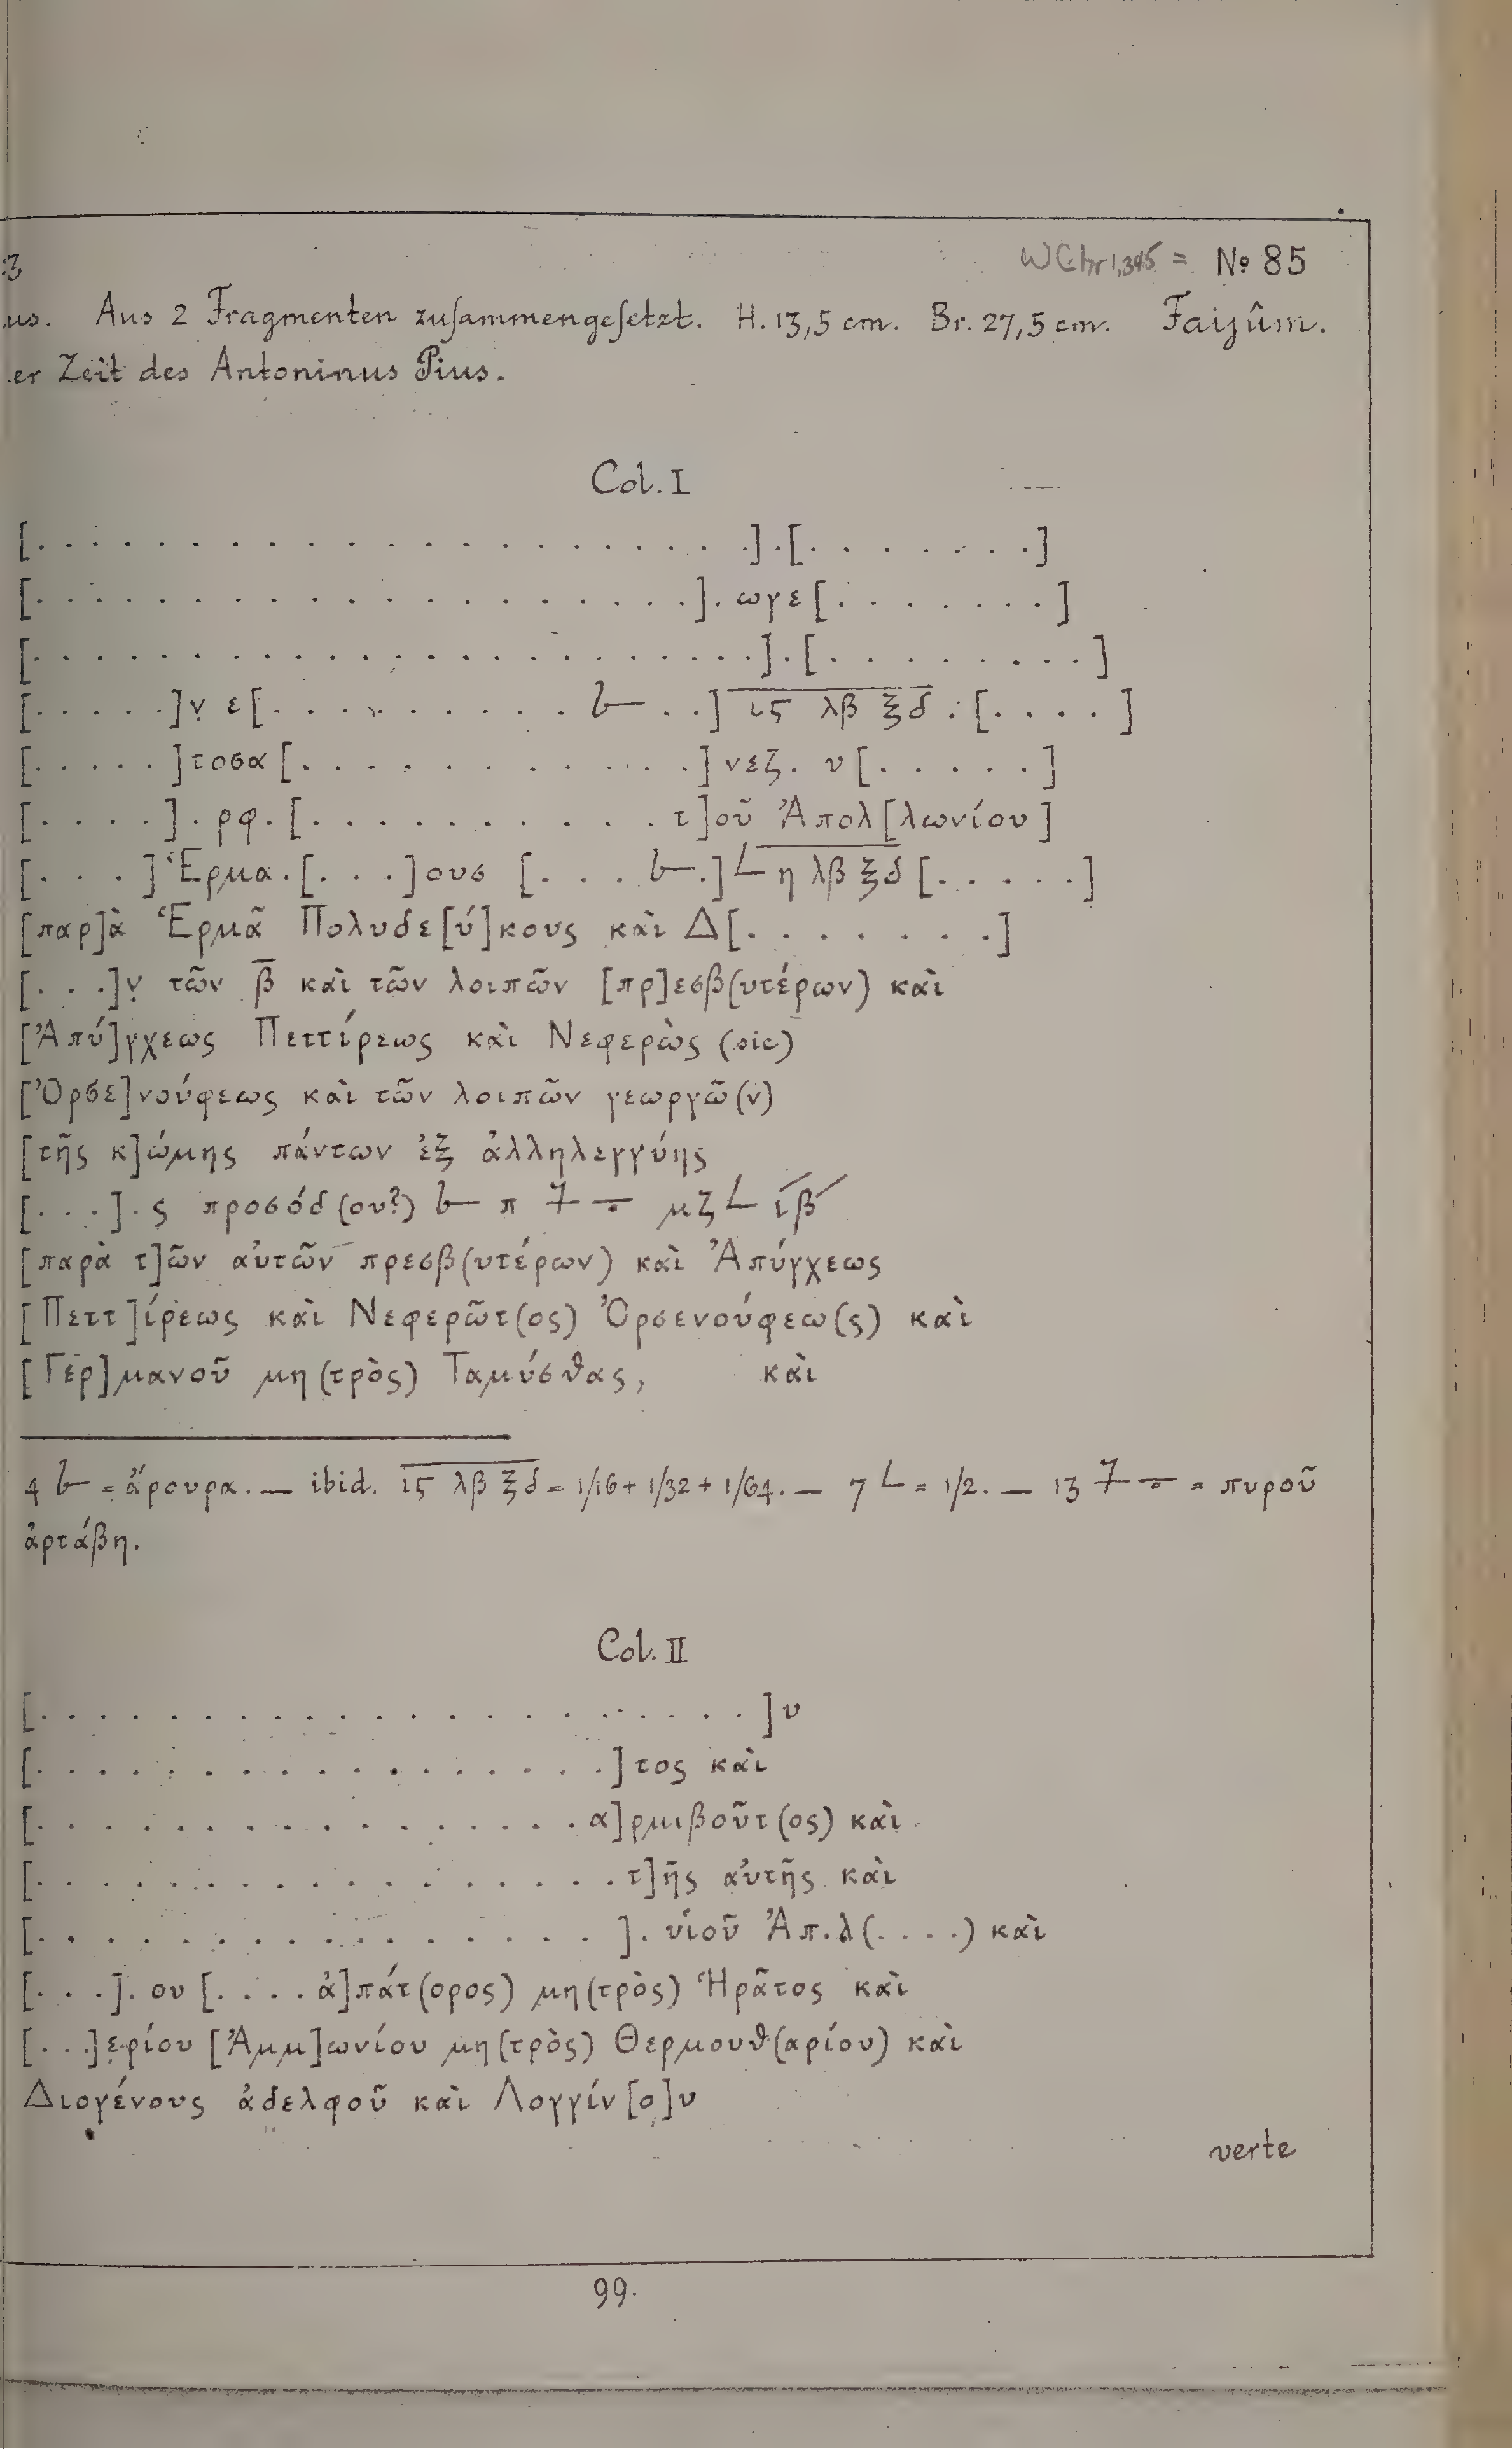 3 WChr 1,345 = No 85
us. Aus 2 Fragmenten zuſammengeſetzt. H. 13,5 cm. Br. 27,5 cm. Faijûm.
er Zeit des Antoninus Pius.
Col. I
[. . . . . . . . . . . . . . . . . . . . . . . .].[. . . . . . . .]
[. . . . . . . . . . . . . . . . . . . . . .]. ωγε[. . . . . . . .]
[. . . . . . . . . . . . . . . . . . . . . . . .].[. . . . . . . . .]
[. . . . .]ν̣ ε[. . . . . . . . . . 𐆄 . .] ι̅ϛ̅ λ̅β̅ ξ̅δ̅ . [. . . .]
[. . . . .]τοσα[. . . . . . . . . . . . .]νεζ. υ[. . . . .]
[. . . .]. ρφ. [. . . . . . . . . . . τ]οῦ Ἀπολ[λωνίου]
[. . .] Ἑρμα.[. . .]ους [. . . 𐆄 .] 𐅵 η λβ ξδ [. . . . .]
[παρ]ὰ Ἑρμᾶ Πολυδε[ύ]κους καὶ Δ[. . . . . . .]
[. . .]ν̣ τῶν β̅ καὶ τῶν λοιπῶν [πρ]εσβ(υτέρων) καὶ
[Ἀπύ]γχεως Πεττίρεως καὶ Νεφερὼς (sic)
[Ὀρσε]νούφεως καὶ τῶν λοιπῶν γεωργῶ(ν)
[τῆς κ]ώμης πάντων ἐξ ἀλληλεγγύης
[. . .]. ς προσόδ(ου?) 𐆄 π 𐆅 μζ 𐅵 ιβ´
[παρὰ τ]ῶν αὐτῶν πρεσβ(υτέρων) καὶ Ἀπύγχεως
[Πεττ]ίρεως καὶ Νεφερῶτ(ος) Ὀρσενούφεω(ς) καὶ
[Γερ]μανοῦ μη(τρὸς) Ταμύσθας, καὶ
4 𐆄 = ἄρουρα. — ibid. ι̅ϛ̅ λ̅β̅ ξ̅δ̅ = 1/16 + 1/32 + 1/64. — 7 𐅵 = 1/2. — 13 𐆅 = πυροῦ
ἀρτάβη.
Col. II
[. . . . . . . . . . . . . . . . . . . . . .]υ
[. . . . . . . . . . . . . . . . .]τος καὶ
[. . . . . . . . . . . . . . . . . α]ρμιβοῦτ(ος) καὶ
[. . . . . . . . . . . . . . . . . . τ]ῆς αὐτῆς καὶ
[. . . . . . . . . . . . . . . . .]. υἱοῦ Ἀπ.λ(. . . .) καὶ
[. . .]. ου [. . . . ἀ]πάτ(ορος) μη(τρὸς) Ἡρᾶτος καὶ
[. . .]ερίου [Ἀμμ]ωνίου μη(τρὸς) Θερμουθ(αρίου) καὶ
Διογένους ἀδελφοῦ καὶ Λογγίν[ο]υ
verte
99.